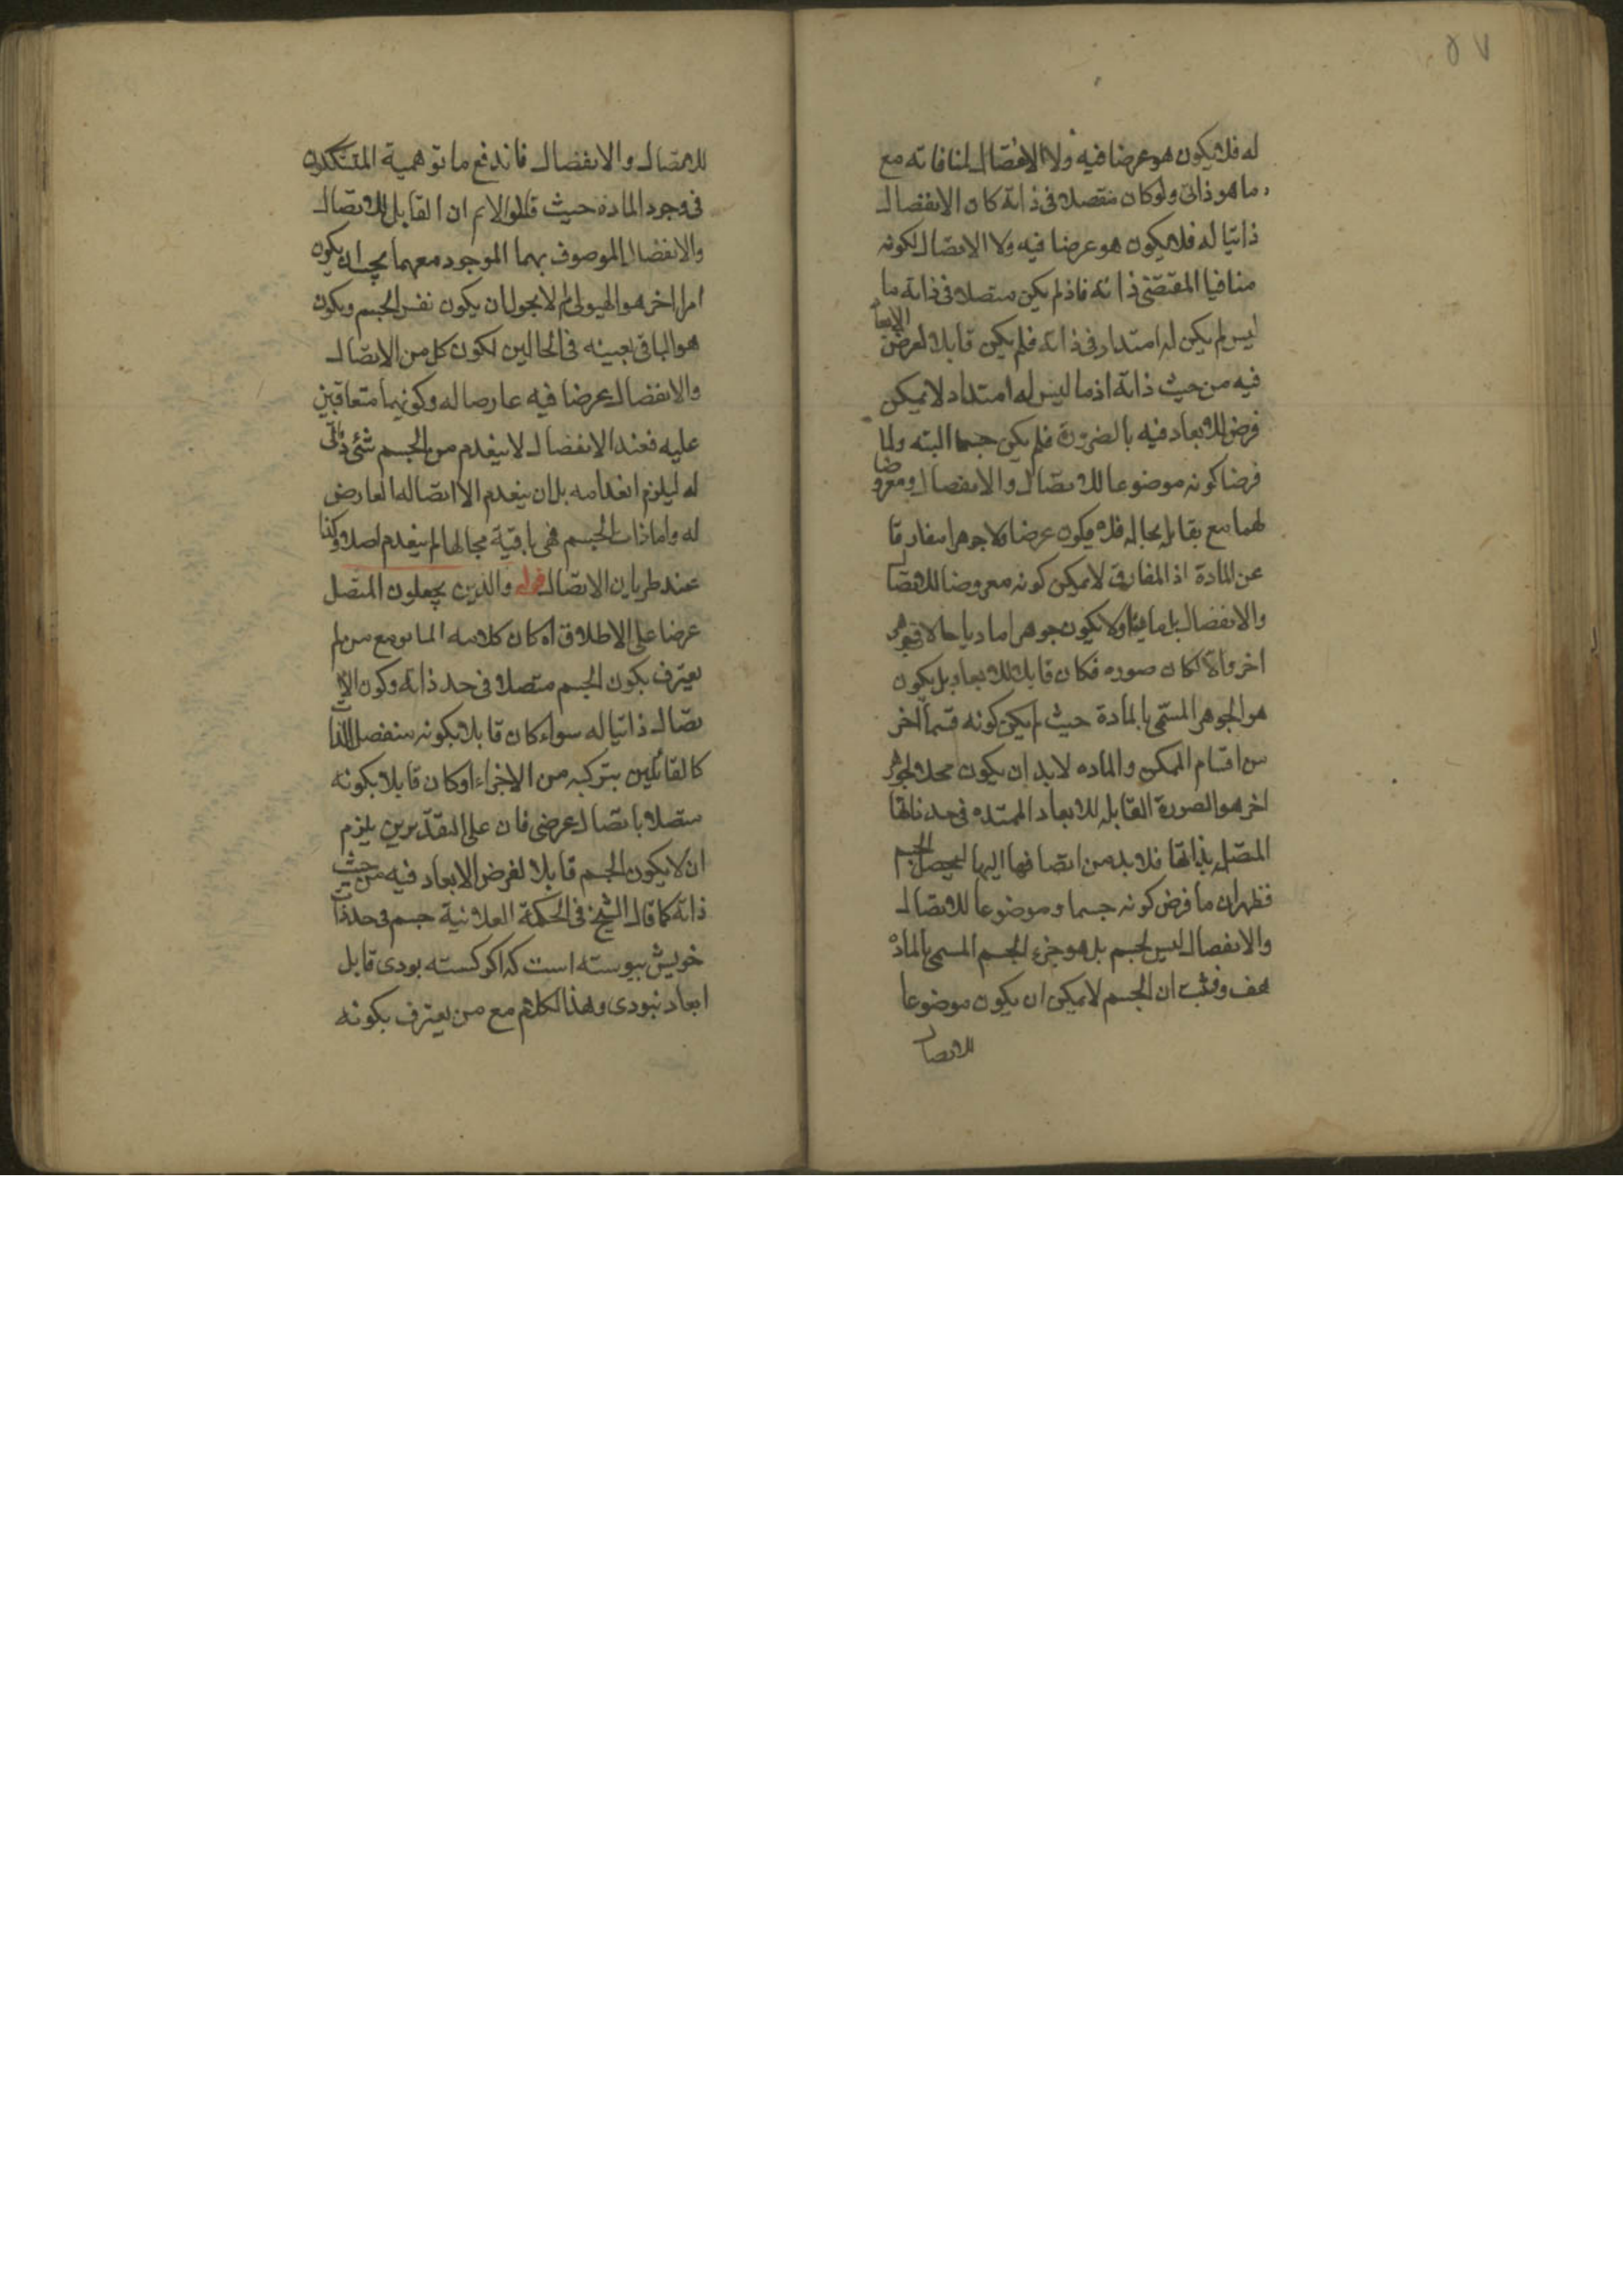 ٥٧
له فلا يكون هو عرضا فيه ولا الانفصال لمنافاته مع
ما هو ذاتى ولو كان منفصلا فى ذاته كان الانفصال
ذاتيا له فلا يكون هو عرضا فيه ولا الاتصال لكونه
منافيا المقتضى ذاته فاذ لم يكن متصلا فى ذاته ما
ليس لم يكن له امتداد فى ذاته فلم يكن قابلا لعرض الابعاد
فيه من حيث ذاته اذ ما ليس له امتداد لا يمكن
فرض الابعاد فيه بالضرورة فلم يكن جسما البته ولما
فرضنا كونه موضوعا للاتصال والانفصال ومعروضا
لهما مع بقائه بحاله فلا يكون عرضا ولا جوهرا مفارقا
عن المادة اذ المفارق لا يمكن كونه معروضا للاتصال
والانفصال بل ماديا ولا يكون جوهرا ماديا حالا فى جوهر
اخر والا لكان صوره فكان قابلا للابعاد بل يكون
هو الجوهر المسمى بالمادة حيث لم يكن كونه قسما اخر
من اقسام الممكن والماده لابد ان يكون محلا لجوهر
اخر هو الصورة القابله للابعاد الممتده فى حد ذاتها
المتصله بذاتها فلابد من انضمامها اليها ليحصل الجسم
فظهر ان ما فرض كونه جسما وموضوعا للاتصال
والانفصال ليس لجسم بل هو جزء الجسم المسمى بالمادة
هف وثبت ان الجسم لا يمكن ان يكون موضوعا
للاتصال
للاتصال والانفصال فاندفع ما توهمية المتشككون
فى وجود الماده حيث قالوا لانم ان القابل للاتصال
والانفصال الموصوف بهما الموجود معهما يجب ان يكون
امرا اخر هو الهيولى لم لا يجوز ان يكون نفس الجسم ويكون
هو الباقى بعينه فى الحالين لكون كل من الاتصال
والانفصال عرضا فيه عارضا له وكونهما متعاقبين
عليه فعند الانفصال لا ينعدم من الجسم شئ ذاتى
له ليلزم انعدامه بل ان ينعدم الا اتصاله العارض
له واما ذات الجسم فهى باقية بحالها لم ينعدم اصلا وكذا
عند طريان الاتصال قوله والذين يجعلون المتصل
عرضا على الاطلاق اه كان كلامه السابق مع من لم
يعترف بكون الجسم متصلا فى حد ذاته وكون الا
تصال ذاتيا له سواء كان قابلا بكونه منفصل الذات
كالقائلين بتركبه من الاجزاء او كان قابلا بكونه
متصلا باتصال عرضى فان على التقديرين يلزم
ان لا يكون الجسم قابلا لفرض الابعاد فيه من حيث
ذاته كما قال الشيخ فى الحكمة العلائية جسم فى حد ذات
خويش پيوسته است كه اكر كسسته بودى قابل
ابعاد نبودى وهذا الكلام مع من يعترف بكونه